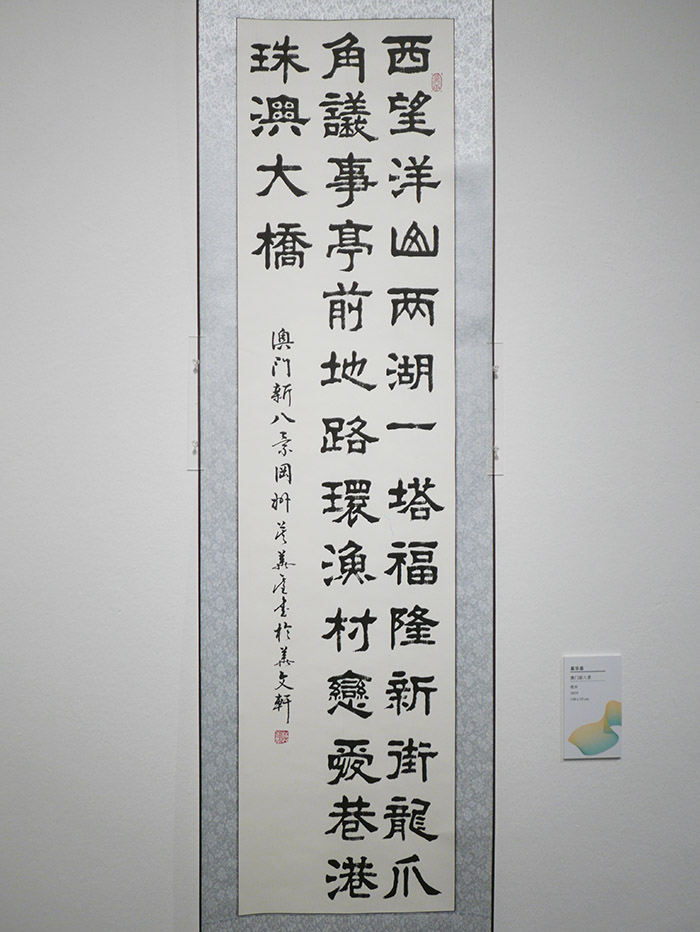 西望洋山两湖一塔福隆新街龍爪
角議事亭前地路環漁村戀愛巷港
珠澳大橋
澳门新八景岡州華書於華文軒
澳门新八景